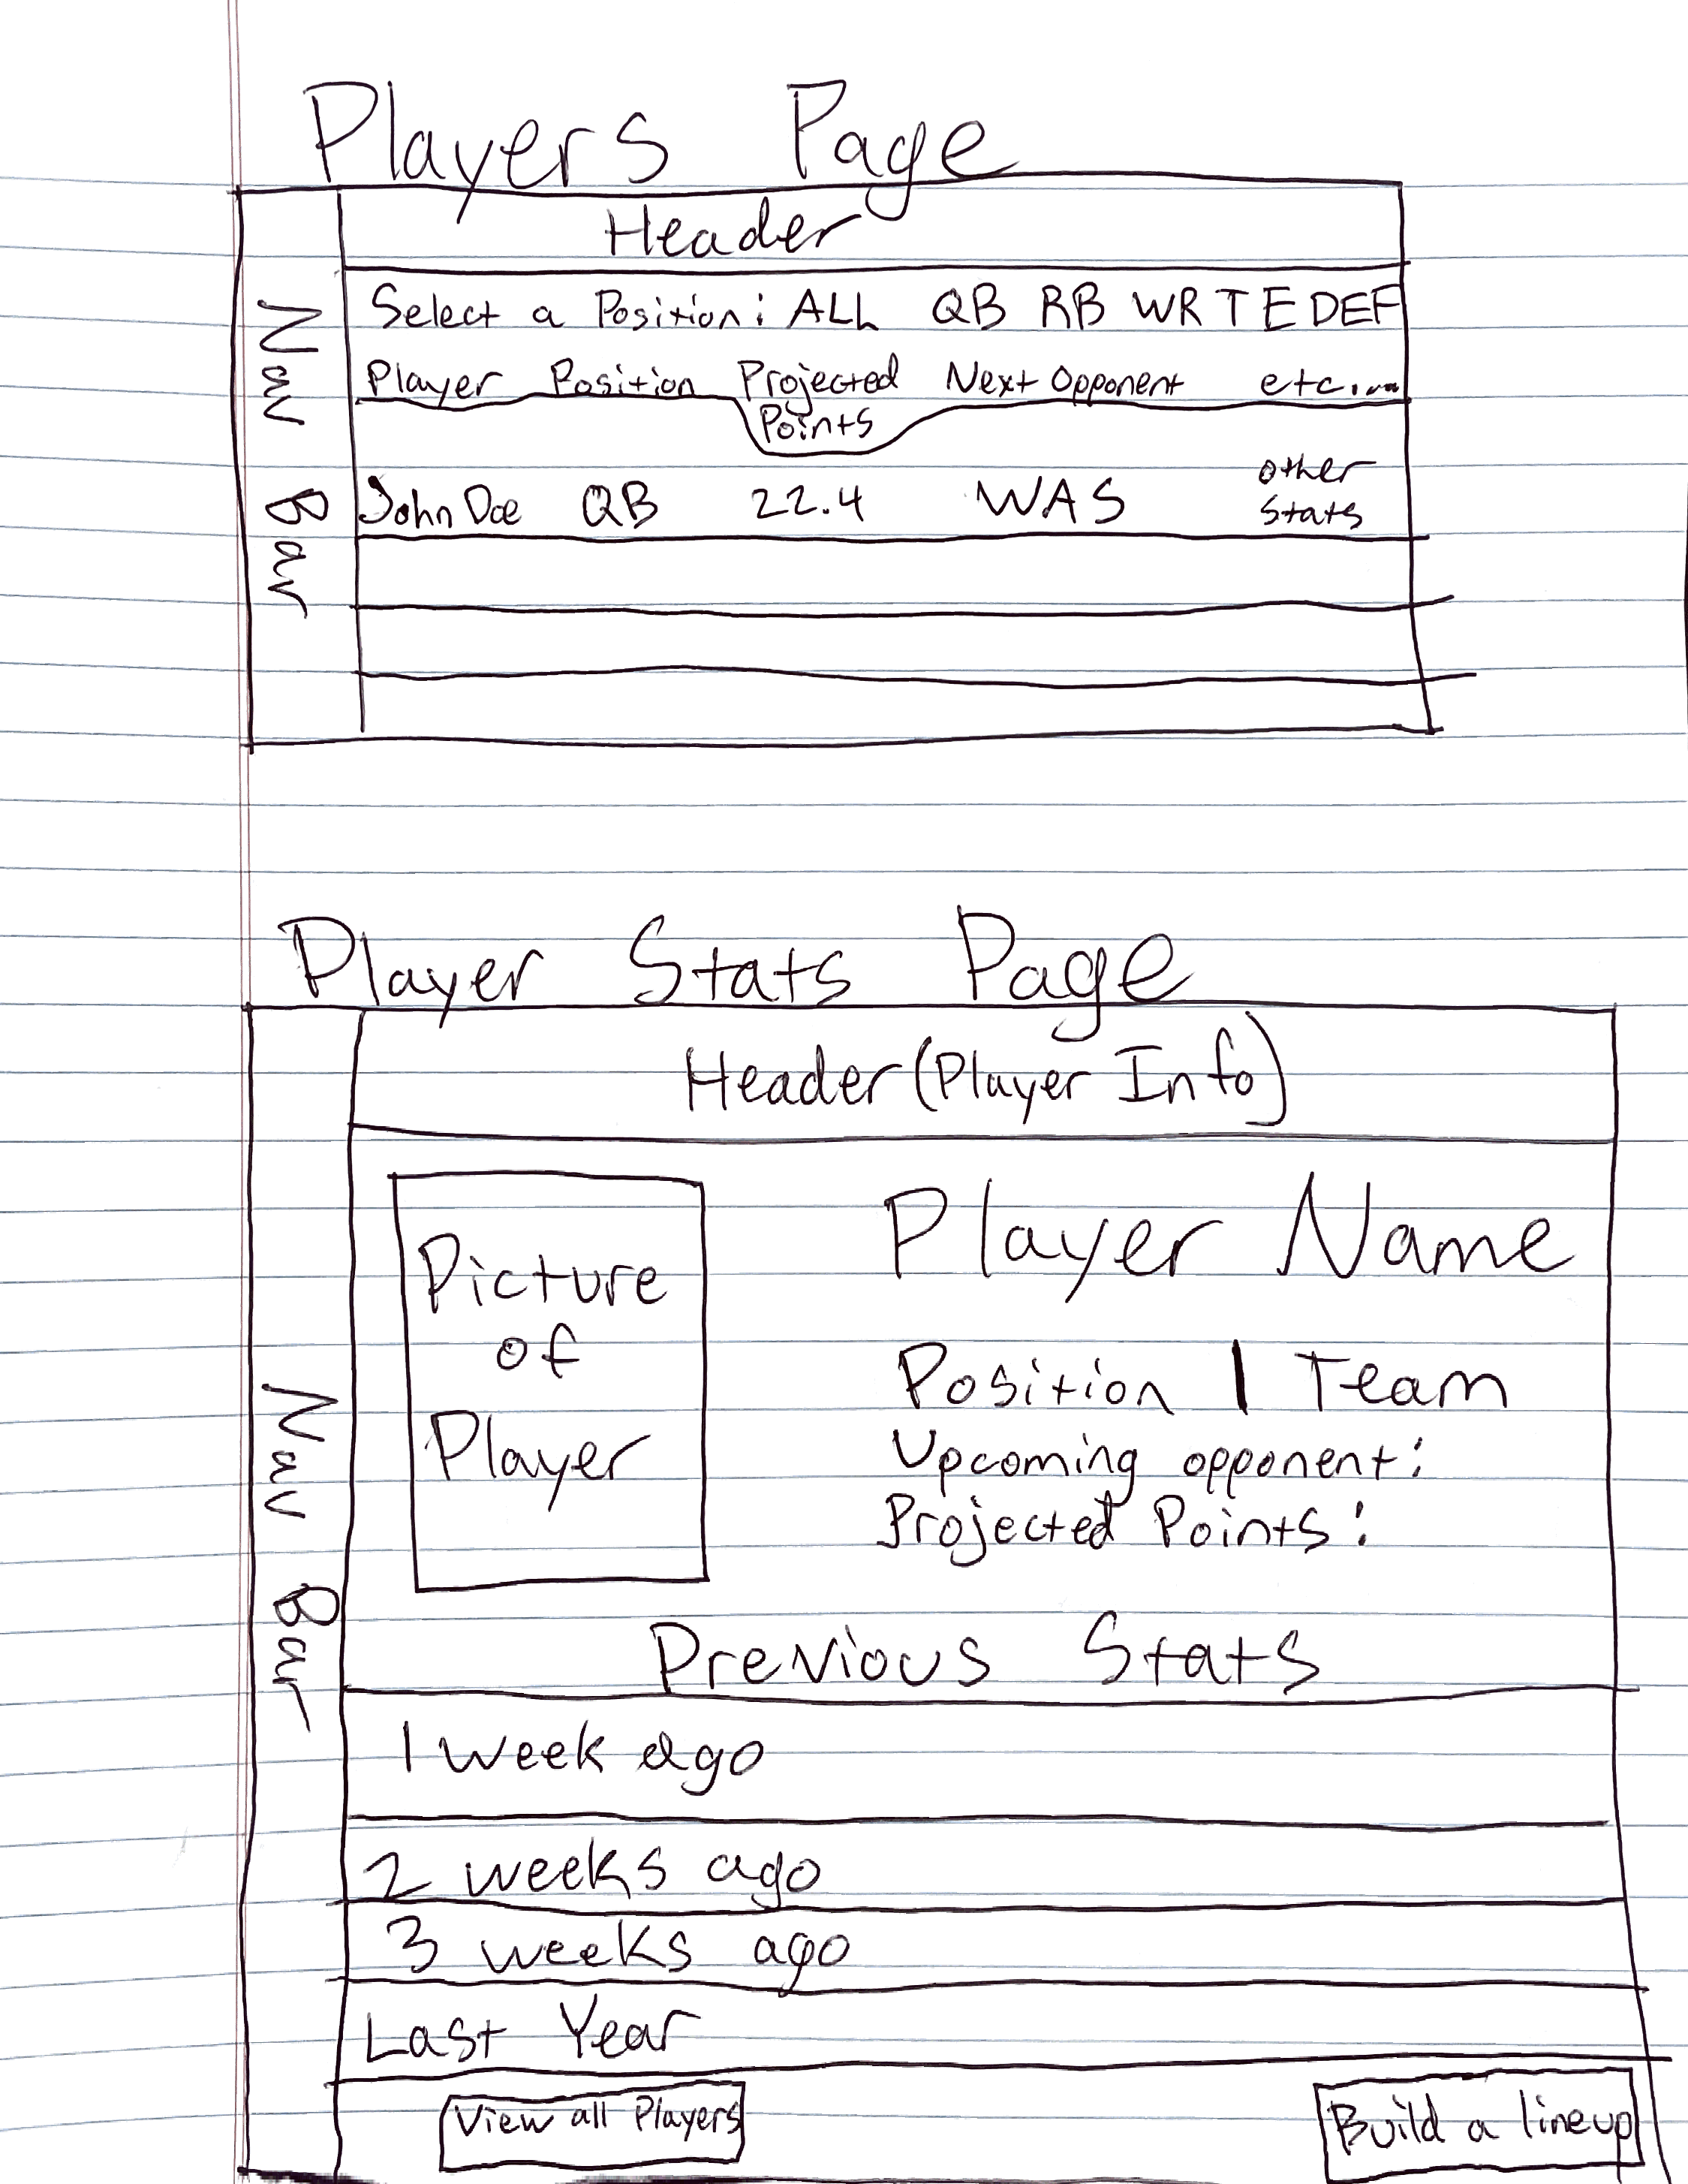 Players Page
Header
Nav Bar
Select a Position: ALL QB RB WR TE DEF
Player Position Projected Points Next Opponent etc...
John Doe QB 22.4 WAS other stats
Player Stats Page
Header (Player Info)
Nav Bar
Picture
of
Player
Player Name
Position | Team
Upcoming opponent:
Projected Points:
Previous Stats
1 week ago
2 weeks ago
3 weeks ago
Last Year
View all Players
Build a lineup